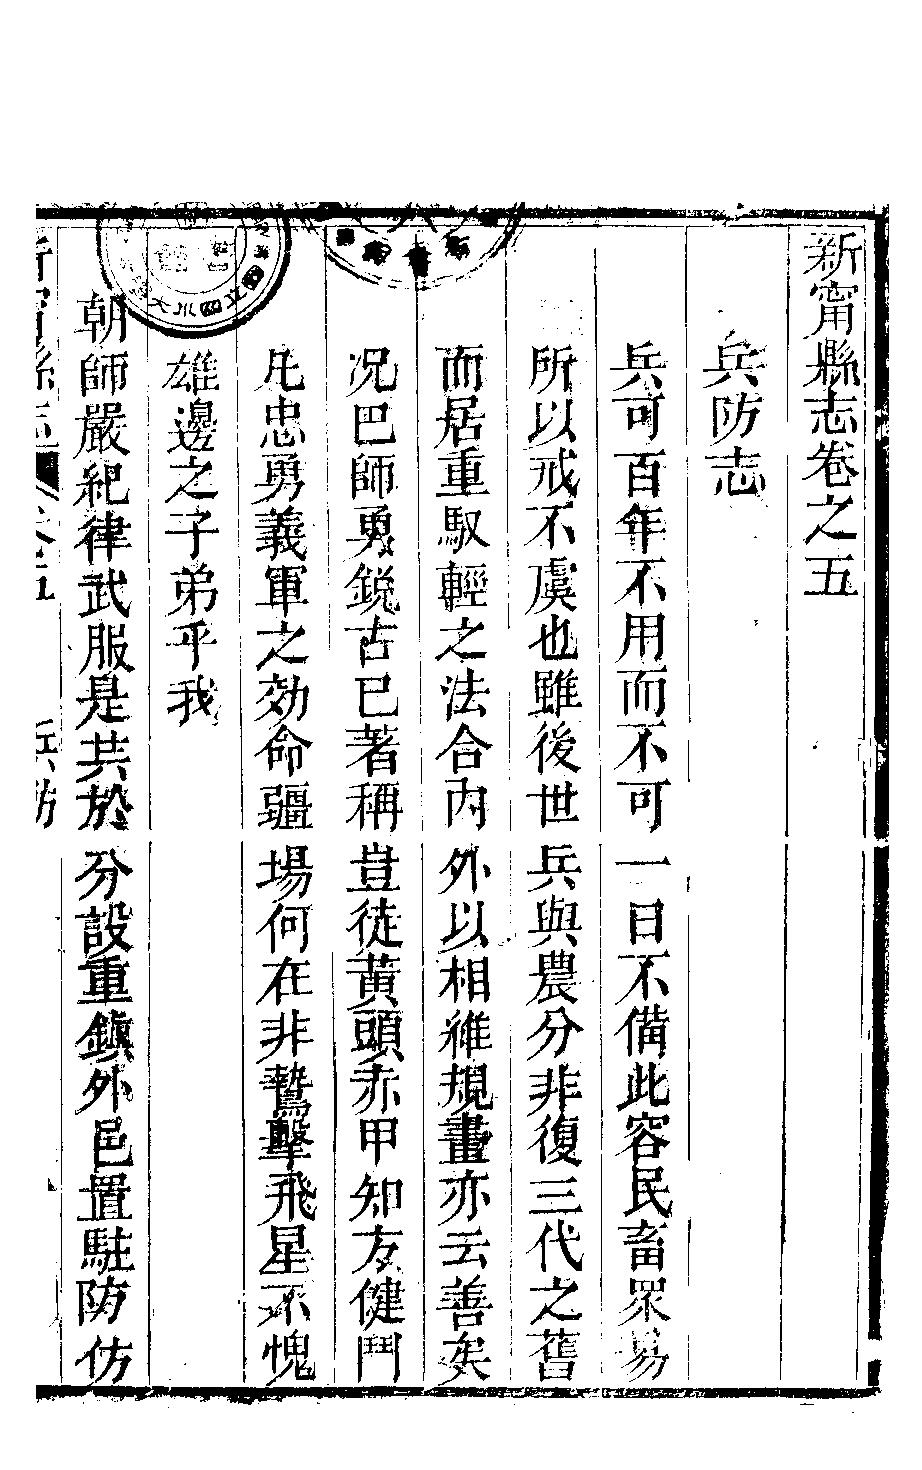 新甯縣志卷之五
兵防志
兵可百年不用而不可一日不備此容民畜眾易
所以戒不虞也雖後世兵與農分非復三代之舊
而居重馭輕之法合內外以相維規畫亦云善矣
況巴師勇銳古已著稱豈徒黃頭赤甲知友健鬥
凡忠勇義軍之効命疆場何在非鷙擊飛星不愧
雄邊之子弟乎我
朝師嚴紀律武服是共於分設重鎮外邑置駐防仿